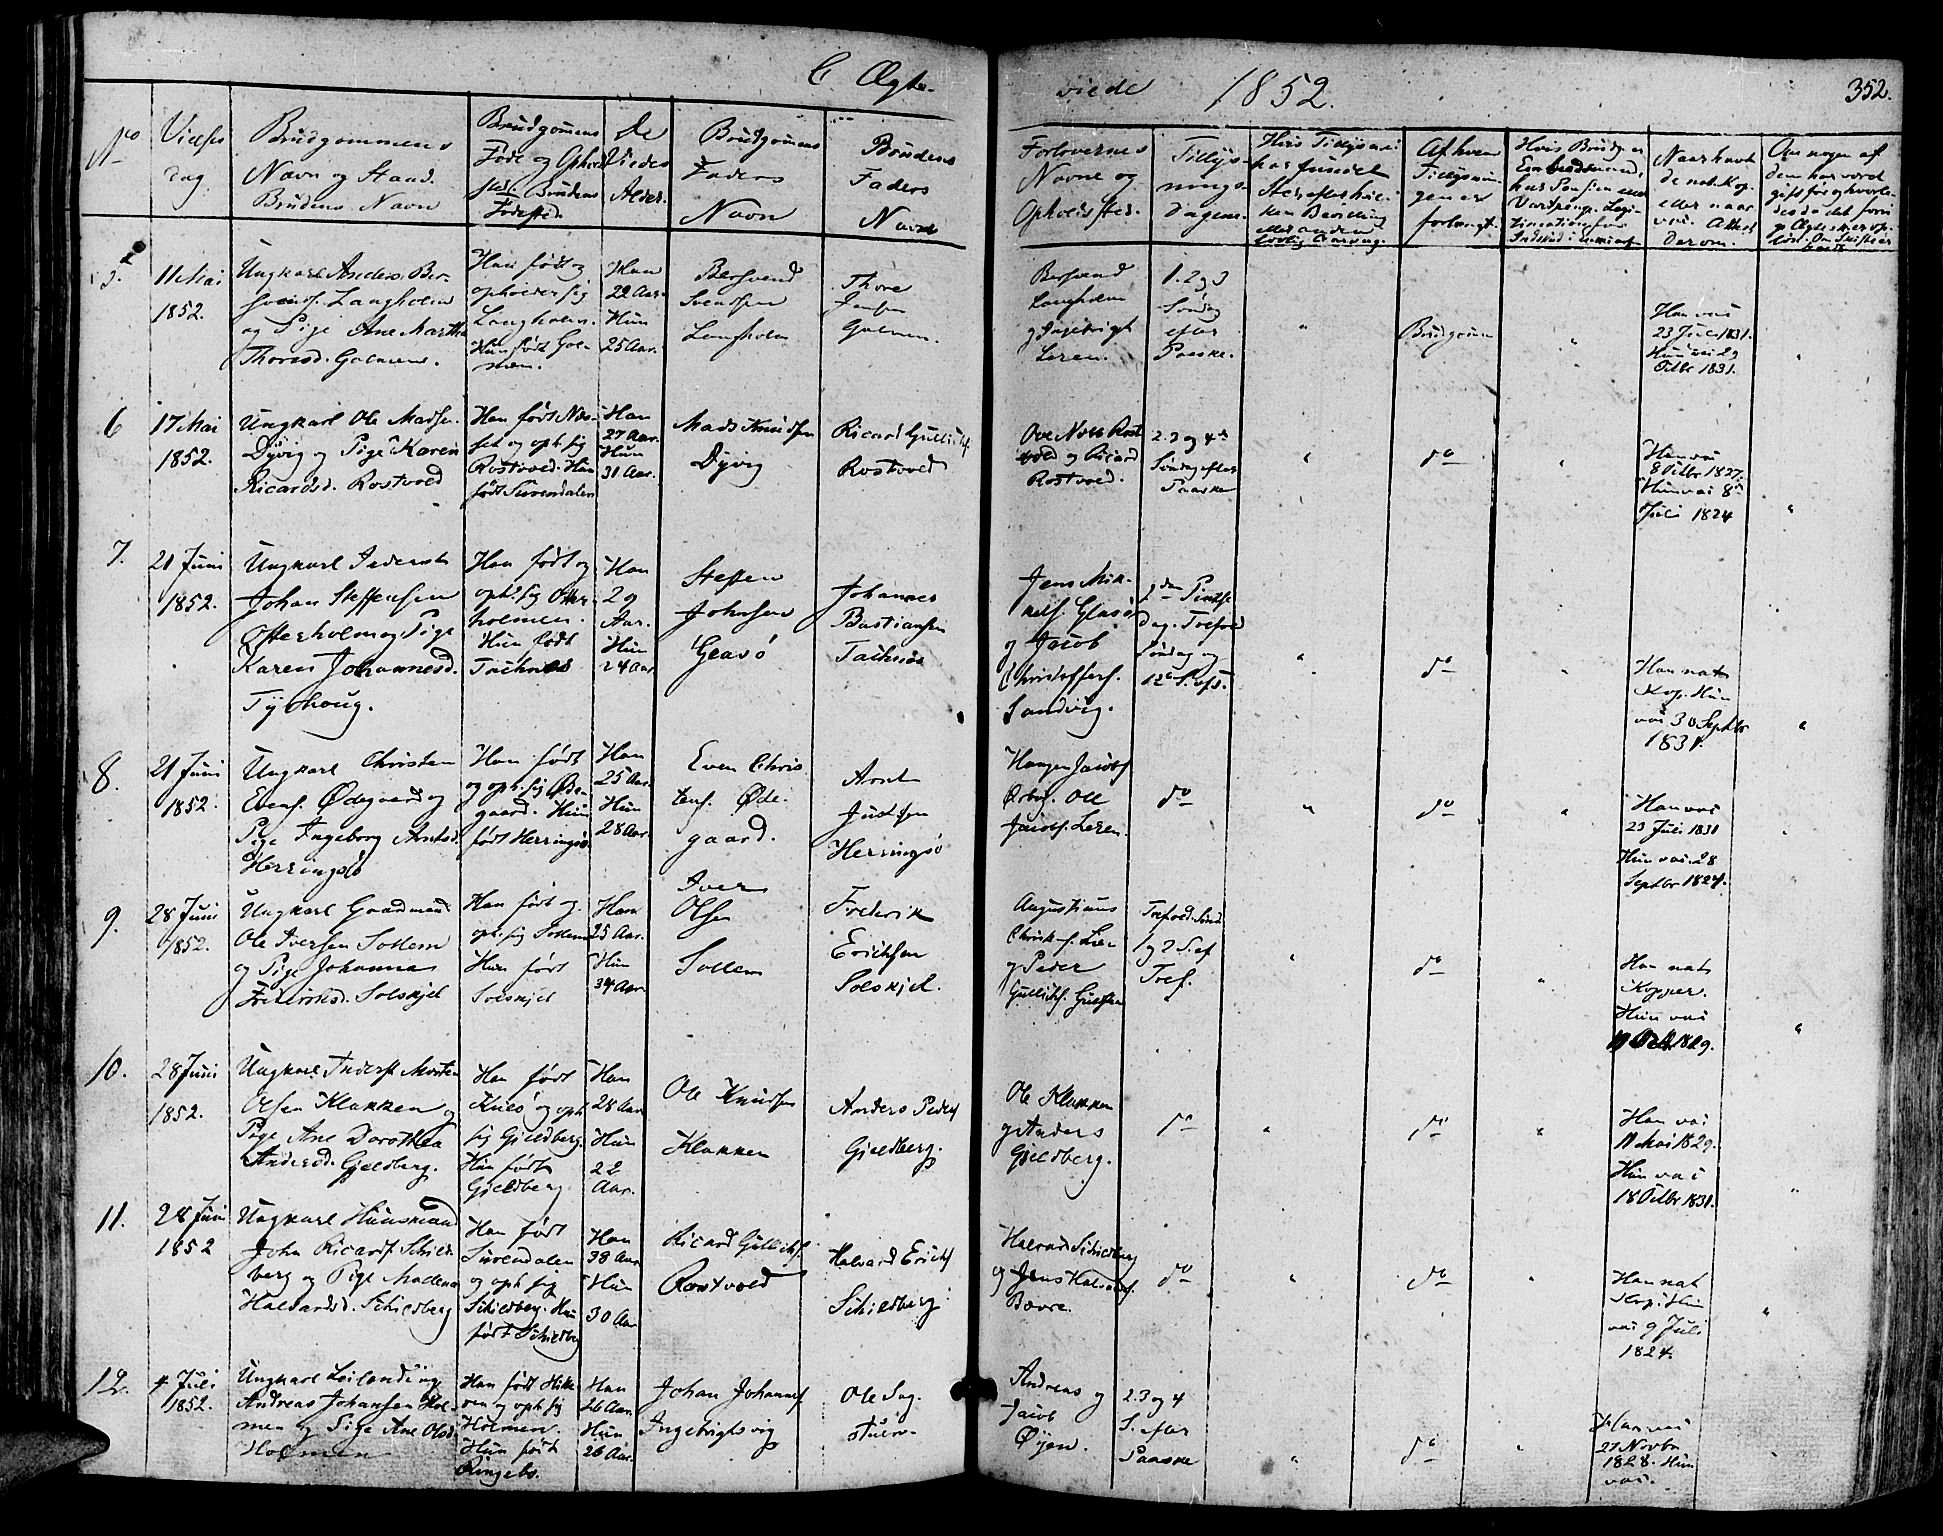 C Ægte-
viede 1852.
352.
No
Vielses
dag.
Brudgommens
Navn og Stand.
Brudens Navn
Brudgomens
Føde og Opholds
sted. Brudens
Fødested.
De
Viedes
Alder.
Brudgomens
Faders
Navn
Brudens
Faders
Navn
Forlovernes
Navne og
Opholdssted.
Tillys-
nings-
dagene.
Af hvem
Tillysnin-
gen er
forlangt.
Naar havt
de nat. Kop.
eller naar
vac. Attest
derom.
5.
11 Mai
1852.
Ungkarl Anders Ber-
svends. Langholm
og Pige Ane Martha
Thoresd. Galmen.
Han født og
opholder sig
Langholm.
Hun født Gal-
men.
Han
22 Aar.
Hun
25 Aar.
Bersvend
Svendsen
Langholm
Thore
Jensen
Galmen.
Bersvend
Langholm
og Ingebrigt
Leren.
1. 2 og 3
Søndag
efter
Paaske.
"
Brudgom
"
Han vac
23 Juli 1831.
Hun vac 29
Octbr 1831.
"
6
17 Mai
1852.
Ungkarl Ole Madsen
Dyvig og Pige Karen
Ricardsd. Rostvold
Han født Næs-
set og oph. sig
Rostvold. Hun
født Surendalen
Han
27 Aar.
Hun
31 Aar.
Mads Knudsen
Dyvig
Ricard Gullichs.
Rostvold
Ove Rost-
vold og Ricard
Rostvold.
2. 3 og 4de
Søndag efter
Paaske
"
do
"
Han vac
8 Octbr 1827.
Hun vac 8de
Juli 1824
"
7.
21 Juni
1852.
Ungkarl Inderst
Johan Steffensen
Osterholm og Pige
Karen Johannesd.
Tyshoug.
Han født og
oph. sig Oster-
holmen.
Hun født
Han
29
Aar.
Hun
24 Aar
Steffen
Johnsen
Glasø
Johannes
Bastiansen
Jens Mik-
kels. Glasø
og Jacob
Christoffers.
Sandvig.
2den Pintse
Dag. Trefold.
Søndag og
"
do
"
Han nat.
Kop. Hun
vac 30 Septbr
1831.
"
8.
21 Juni
1852.
Ungkarl Christen
Evens. Ødegaard og
Pige Ingeborg Arntsd.
Herringsø
Han født
og oph. sig Øde-
gaard. Hun
født Herringsø
Han
25 Aar.
Hun
28 Aar.
Even Chris
tens. Øde-
gaard.
Arnt
Justsen
Herringsø
Jacobs.
Ole
Jacobs. Leren.
do
"
do
"
Han vac
23 Juli 1831
Hun vac. 28
Septbr 1824.
"
9.
28 Juni
1852.
Ungkarl Gaardmand
Ole Iversen Sollem
og Pige Johanna
Frederiksd. Solskjel
Han født og
oph. sig Sollem
Hun født
Solskjel
Han
25 Aar.
Hun
34 Aar.
Iver
Olsen
Sollem
Frederik
Erichsen
Solskjel.
Augustinus
og Peder
Trefold. Sønd.
1 og 2 S. ef.
Tref.
"
do
"
Han nat.
Kopper.
Hun vac
"
10.
28 Juni
1852.
Ungkarl Inderst Morten
Olsen Klakken og
Pige Ane Dorothea
Andersd. Gjeldberg.
Han født
og oph.
sig Gjeldberg.
Hun født
Gjeldberg
Han
28 Aar
Hun
22
Aar.
Ole Knudsen
Klakken
Anders Peders.
Gjeldberg.
Ole Klakken
og Anders
Gjeldberg.
do
"
do
"
Han vac
11 Mai 1829.
Hun vac
18 Octbr 1831.
"
11.
28 Juni
1852
Ungkarl Huusmand
John Ricards. Schild-
berg og Pige Malena
Halvardsd. Schieldberg
Han født
Surendalen
og oph. sig
Schieldberg. Hun
født Schieldberg
Han
38 Aar
Hun
30 Aar
Ricard Gullichs.
Rostvold
Halvard Erichs.
Schieldberg
Halvard Schieldberg
og Jens Halvards.
Bøvre.
do
"
do
"
Han nat.
Kop. Hun
vac 9 Juli
1824.
"
12.
4 Juli
1852.
Ungkarl Leilending
Andreas Johansen Hol-
men og Pige Ane Olsd.
Holmen
Han født Hitte-
ren og oph. sig
Holmen.
Hun født
Ringebo.
Han
26 Aar.
Hun
26 Aar.
Johan Johannes.
Ingebrigtsvig
Andreas og
Jacob
Øyen.
2. 3 og 4
S. efter
Paaske
"
do
"
Han vac
27 Novbr
1828. Hun
vac.